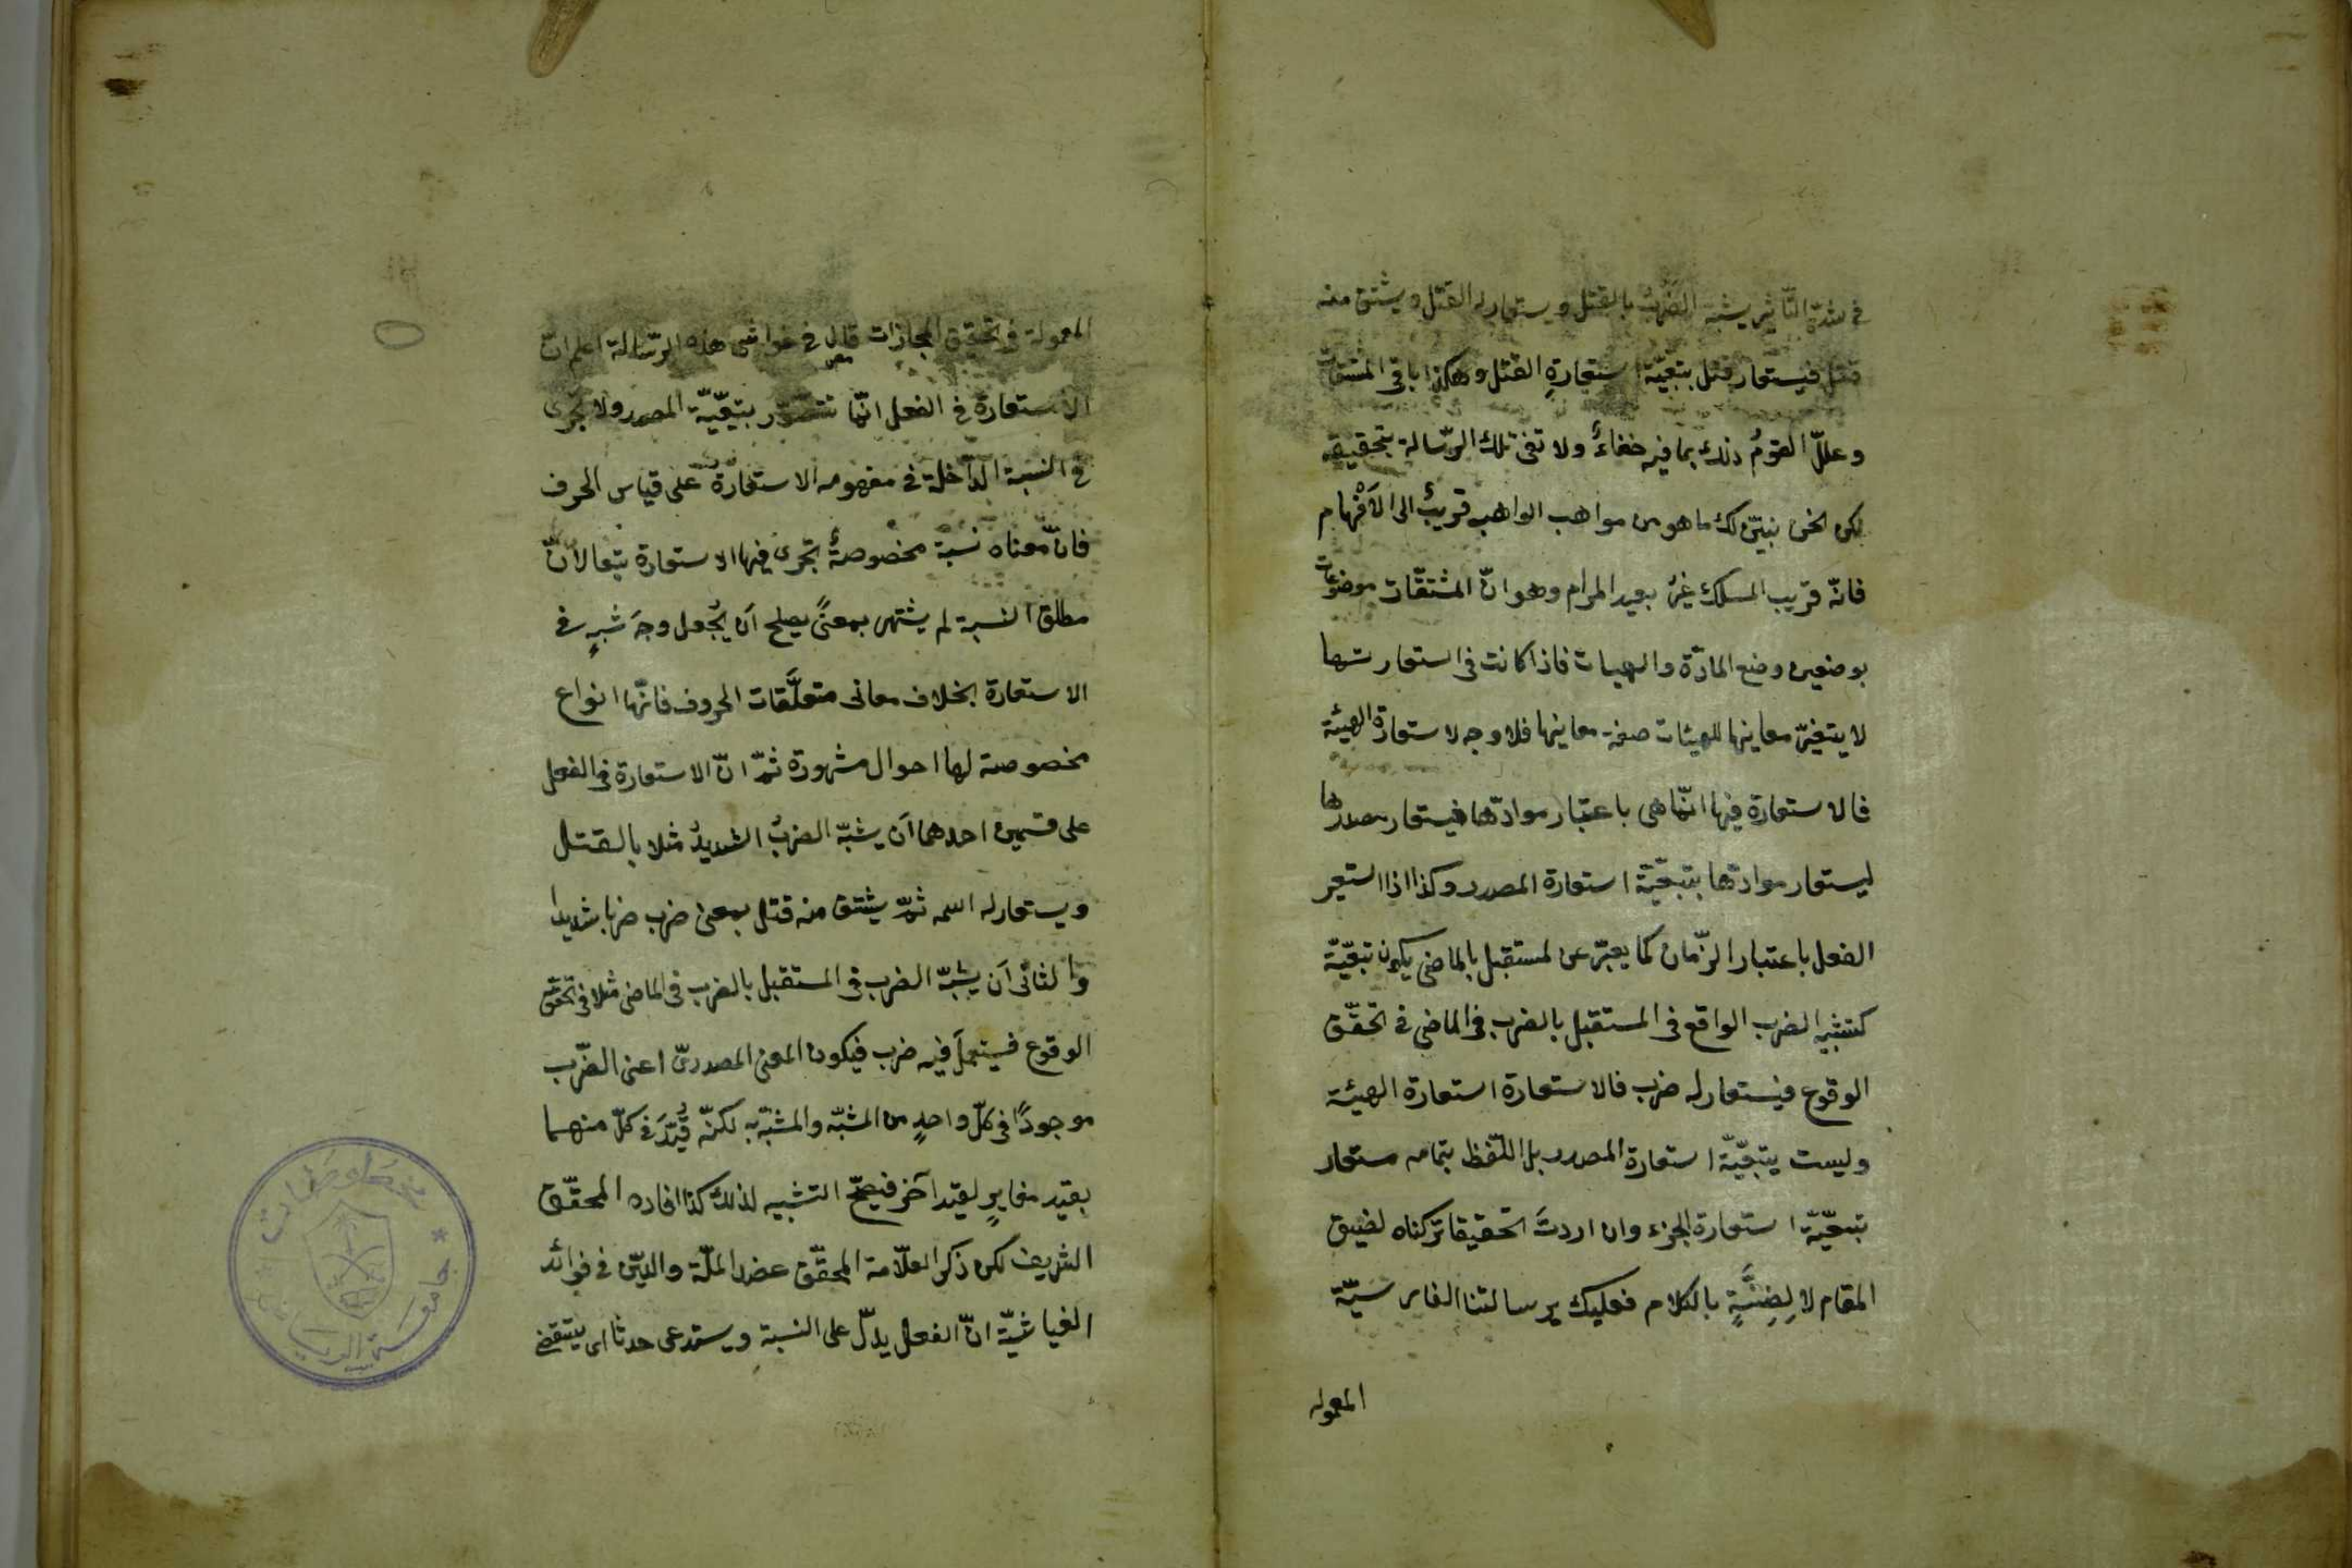 في شدة التأثير يشبه الضرب بالقتل ويستعار له القتل ويشتق منه
قتل فيستعار قتل بتبعيّة استعارةِ القتل وهكذا باقي المشتقات
وعللّ القومُ ذلك بما فيه خفاءٌ ولا تفي تلك الرّسالة بتحقيقه
لكن نحن نبيّن لك ما هو من مواهب الواهب قريبٌ الى الاَفْهام
فانّه قريب المسلك غيرُ بعيد المرام وهو انّ المشتقّات موضوعات
بوضعين وضع المادّة والهيئات فاذا كانت في استعارتها
لا يتغيّر معانيها للهيئات صفة معانيها فلا وجه لاستعارة الهيئة
فالاستعارة فيها انّما هي باعتبار موادّها فيستعار مصدرها
ليستعار موادّها بتبعيّة استعارة المصدر وكذا اذا استعير
الفعل باعتبار الزّمان كما يعبّر عن لمستقبل بالماضى يكون تبعيّة
كتشبيه الضرب الواقع في المستقبل بالضرب في الماضى في تحقّق
الوقوع فيستعار له ضرب فالاستعارة استعارة الهيئة
وليست بتبعيّة استعارة المصدر بل اللّفظ بتمامه مستعار
بتبعيّة استعارة الجزء وان اردتَ تحقيقا تركناه لضيق
المقام لا لِضِنَّةٍ بالكلام فعليك برسالتنا الفارسيّة
المعموله
المعمولة في تحقيق المجازات قال في حواشي هذه الرّسالة اعلم انّ
الاستعارة في الفعل انّما تتصوّر بتبعيّة المصدر ولا تجرى
في النسبة الدّاخلة في مفهومه الاستعارة على قياس الحرف
فانّ معناه نسبة مخصوصةٌ تجرى فيها الاستعارة تبعا لانّ
مطلق النسبة لم يشتهر بمعنًى يصلح اَن يُجعل وجهَ شبهٍ في
الاستعارة بخلاف معانى متعلَّقات الحروف فانّها انواع
مخصوصة لها احوال مشهورة ثمّ انّ الاستعارة في الفعل
على قسمين احدهما اَن يشبّه الضربُ الشديدُ مثلا بالقتل
ويستعار له اسمه ثمّ يشتق منه قتل بمعنى ضرب ضربا شديدا
والثانى اَن يشبّه الضرب في المستقبل بالضرب في الماضى مثلا في تحقق
الوقوع فيستعملَ فيه ضرب فيكون المعنى المصدرىّ اعنى الضّرب
موجودًا في كلّ واحدٍ من المشبّه والمشبّه به لكنّه قُيّدَ في كلّ منهما
بقيد مغايرٍ لقيد آخر فيصحّ التشبيه لذلك كذا افاده المحقّق
الشريف لكن ذكر العلّامة المحقّق عضد الملّة والدّين في فوائد
الغياثيّة انّ الفعل يدلّ على النسبة ويستدعى حدثا اى يقتضى
جامعة الرياض